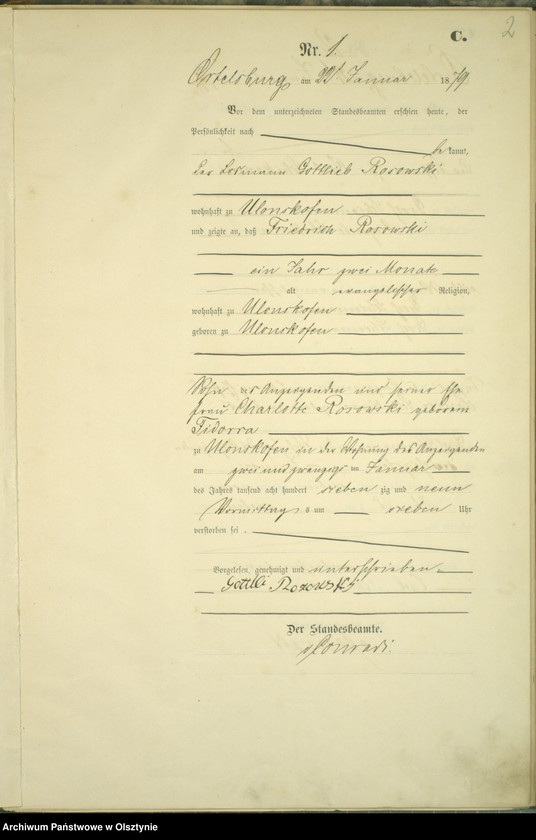 C.
2
Nr. 1.
Ortelsburg, am 22t Januar 1879
Vor dem unterzeichneten Standesbeamten erschien heute, der
Persönlichkeit nach
be kannt,
der Losmann Gottlieb Rosowski
wohnhaft zu Ulonskofen
und zeigte an, daß Friedrich Rosowski
ein Jahr zwei Monate
alt evangelischer Religion,
wohnhaft zu Ulonskofen
geboren zu Ulonskofen
Sohn des Anzeigenden und seiner Ehe
frau Charlotte Rosowski geborem
Fidorra
zu Ulonskofen in der Wohnung des Anzeigenden
am zwei und zwanzigs ten Januar
des Jahres tausend acht hundert sieben zig und neun
Vormittags um sieben Uhr
verstorben sei.
Vorgelesen, genehmigt und unterschrieben
Gottli Rosowski
Der Standesbeamte.
Conradi.
Archiwum Państwowe w Olsztynie